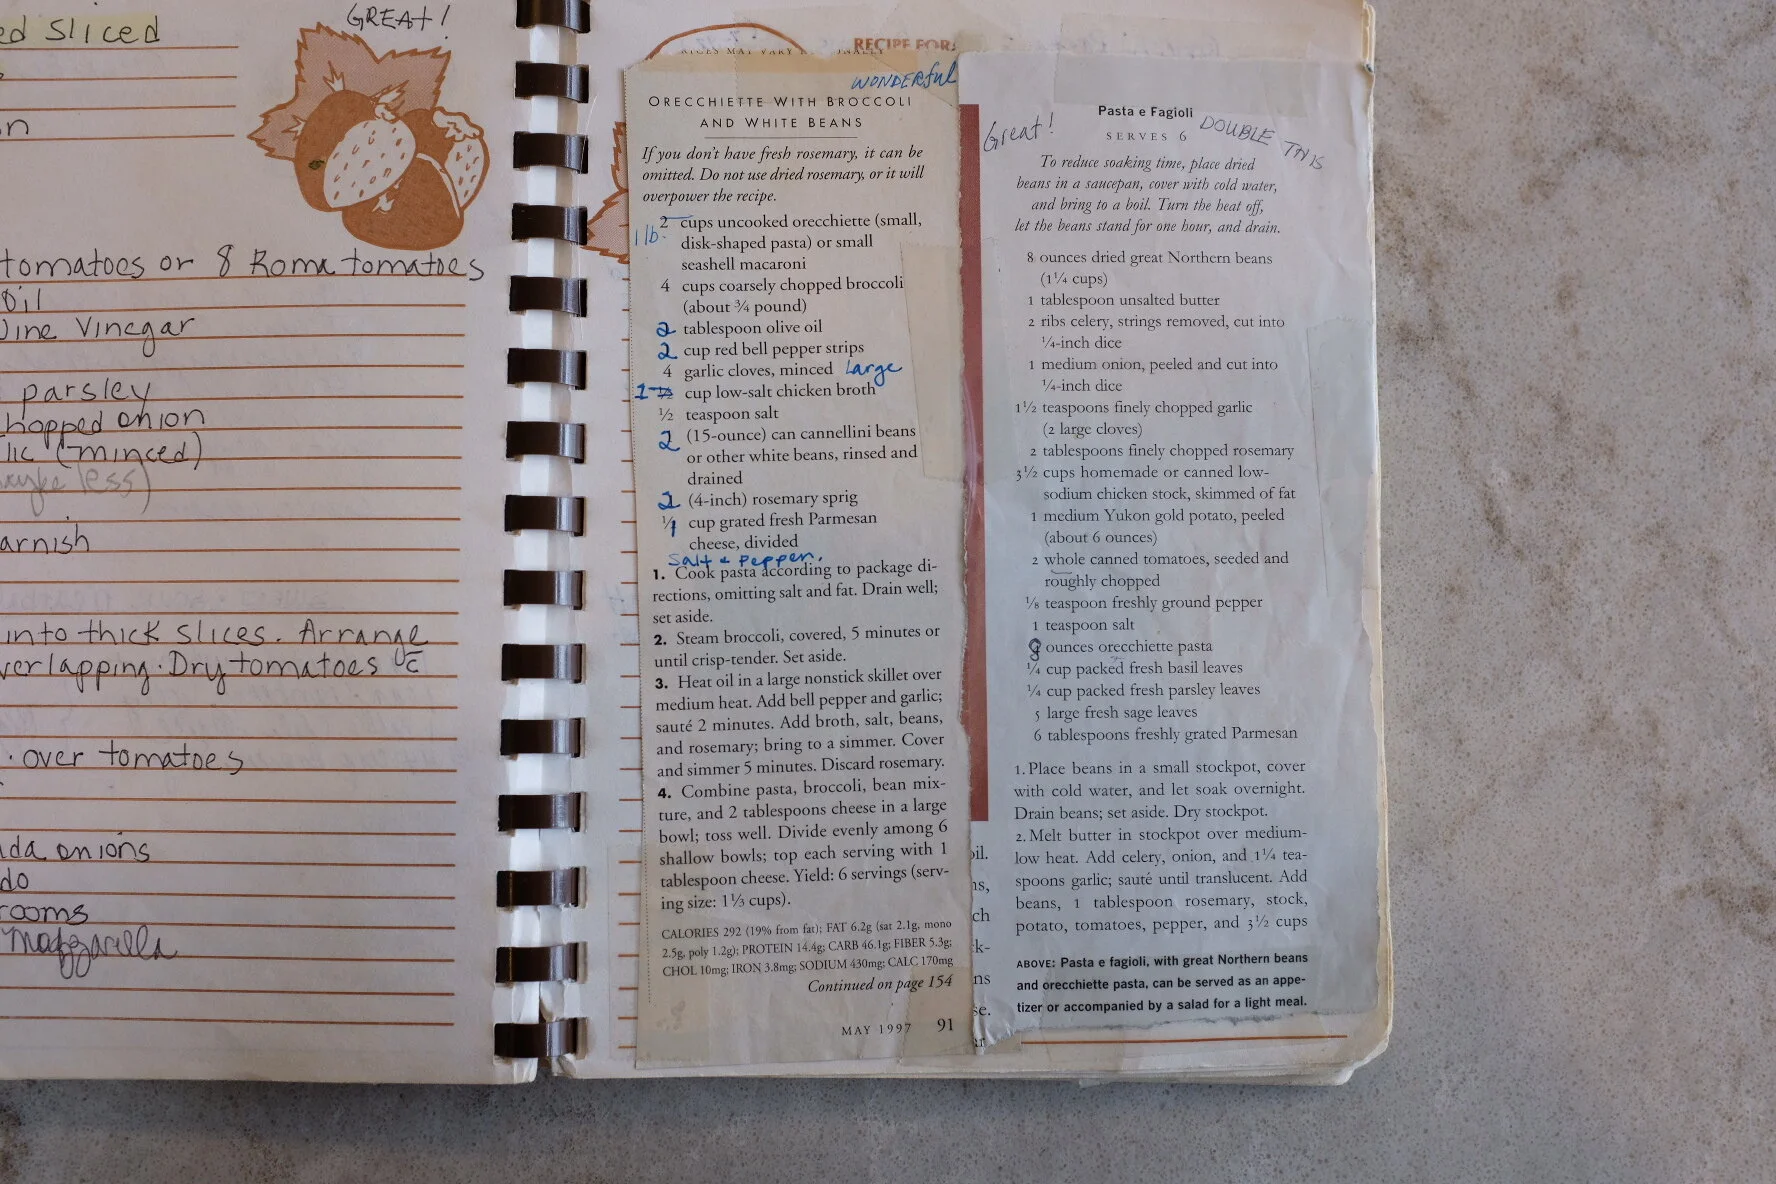 GREAT!
ed Sliced
on
tomatoes or 8 Roma tomatoes
Oil
Wine Vinegar
parsley
hopped onion
lic (minced)
less)
arnish
into thick slices. Arrange
verlapping. Dry tomatoes c̄
. over tomatoes
da onions
do
rooms
Mozzarella
RECIPE FOR:
WONDERful
ORECCHIETTE WITH BROCCOLI
AND WHITE BEANS
If you don't have fresh rosemary, it can be
omitted. Do not use dried rosemary, or it will
overpower the recipe.
2 cups uncooked orecchiette (small,
1 lb. disk-shaped pasta) or small
seashell macaroni
4 cups coarsely chopped broccoli
(about ¾ pound)
2 tablespoon olive oil
2 cup red bell pepper strips
4 garlic cloves, minced Large
1 ½ cup low-salt chicken broth
½ teaspoon salt
2 (15-ounce) can cannellini beans
or other white beans, rinsed and
drained
2 (4-inch) rosemary sprig
1 cup grated fresh Parmesan
cheese, divided
Salt & Pepper.
1. Cook pasta according to package di-
rections, omitting salt and fat. Drain well;
set aside.
2. Steam broccoli, covered, 5 minutes or
until crisp-tender. Set aside.
3. Heat oil in a large nonstick skillet over
medium heat. Add bell pepper and garlic;
sauté 2 minutes. Add broth, salt, beans,
and rosemary; bring to a simmer. Cover
and simmer 5 minutes. Discard rosemary.
4. Combine pasta, broccoli, bean mix-
ture, and 2 tablespoons cheese in a large
bowl; toss well. Divide evenly among 6
shallow bowls; top each serving with 1
tablespoon cheese. Yield: 6 servings (serv-
ing size: 1⅓ cups).
CALORIES 292 (19% from fat); FAT 6.2g (sat 2.1g, mono
2.5g, poly 1.2g); PROTEIN 14.4g; CARB 46.1g; FIBER 5.3g;
CHOL 10mg; IRON 3.8mg; SODIUM 430mg; CALC 170mg
Continued on page 154
MAY 1997 91
oil.
ns,
ch
k-
ns
se.
ar
Pasta e Fagioli
Great!
SERVES 6
DOUBLE THIS
To reduce soaking time, place dried
beans in a saucepan, cover with cold water,
and bring to a boil. Turn the heat off,
let the beans stand for one hour, and drain.
8 ounces dried great Northern beans
(1¼ cups)
1 tablespoon unsalted butter
2 ribs celery, strings removed, cut into
¼-inch dice
1 medium onion, peeled and cut into
¼-inch dice
1½ teaspoons finely chopped garlic
(2 large cloves)
2 tablespoons finely chopped rosemary
3½ cups homemade or canned low-
sodium chicken stock, skimmed of fat
1 medium Yukon gold potato, peeled
(about 6 ounces)
2 whole canned tomatoes, seeded and
roughly chopped
⅛ teaspoon freshly ground pepper
1 teaspoon salt
8 ounces orecchiette pasta
¼ cup packed fresh basil leaves
¼ cup packed fresh parsley leaves
5 large fresh sage leaves
6 tablespoons freshly grated Parmesan
1. Place beans in a small stockpot, cover
with cold water, and let soak overnight.
Drain beans; set aside. Dry stockpot.
2. Melt butter in stockpot over medium-
low heat. Add celery, onion, and 1¼ tea-
spoons garlic; sauté until translucent. Add
beans, 1 tablespoon rosemary, stock,
potato, tomatoes, pepper, and 3½ cups
ABOVE: Pasta e fagioli, with great Northern beans
and orecchiette pasta, can be served as an appe-
tizer or accompanied by a salad for a light meal.